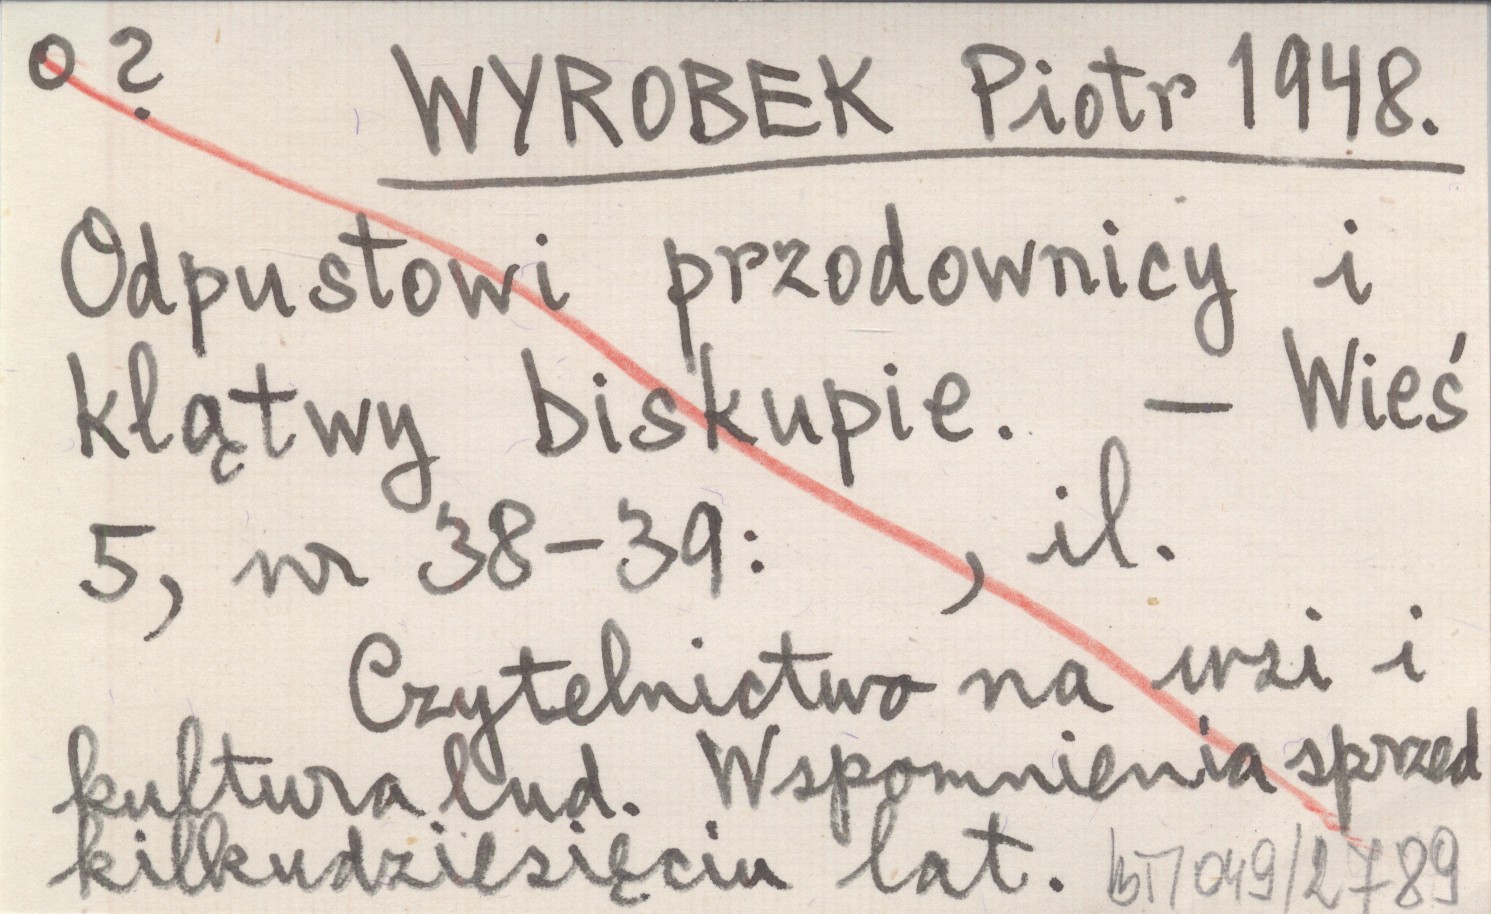 o ?
WYROBEK Piotr 1948.
Odpustowi przodownicy i
klątwy biskupie. — Wieś
5, nr 38-39: , il.
Czytelnictwo na wsi i
kultura lud. Wspomnienia sprzed
kilkudziesięciu lat.
049/2789